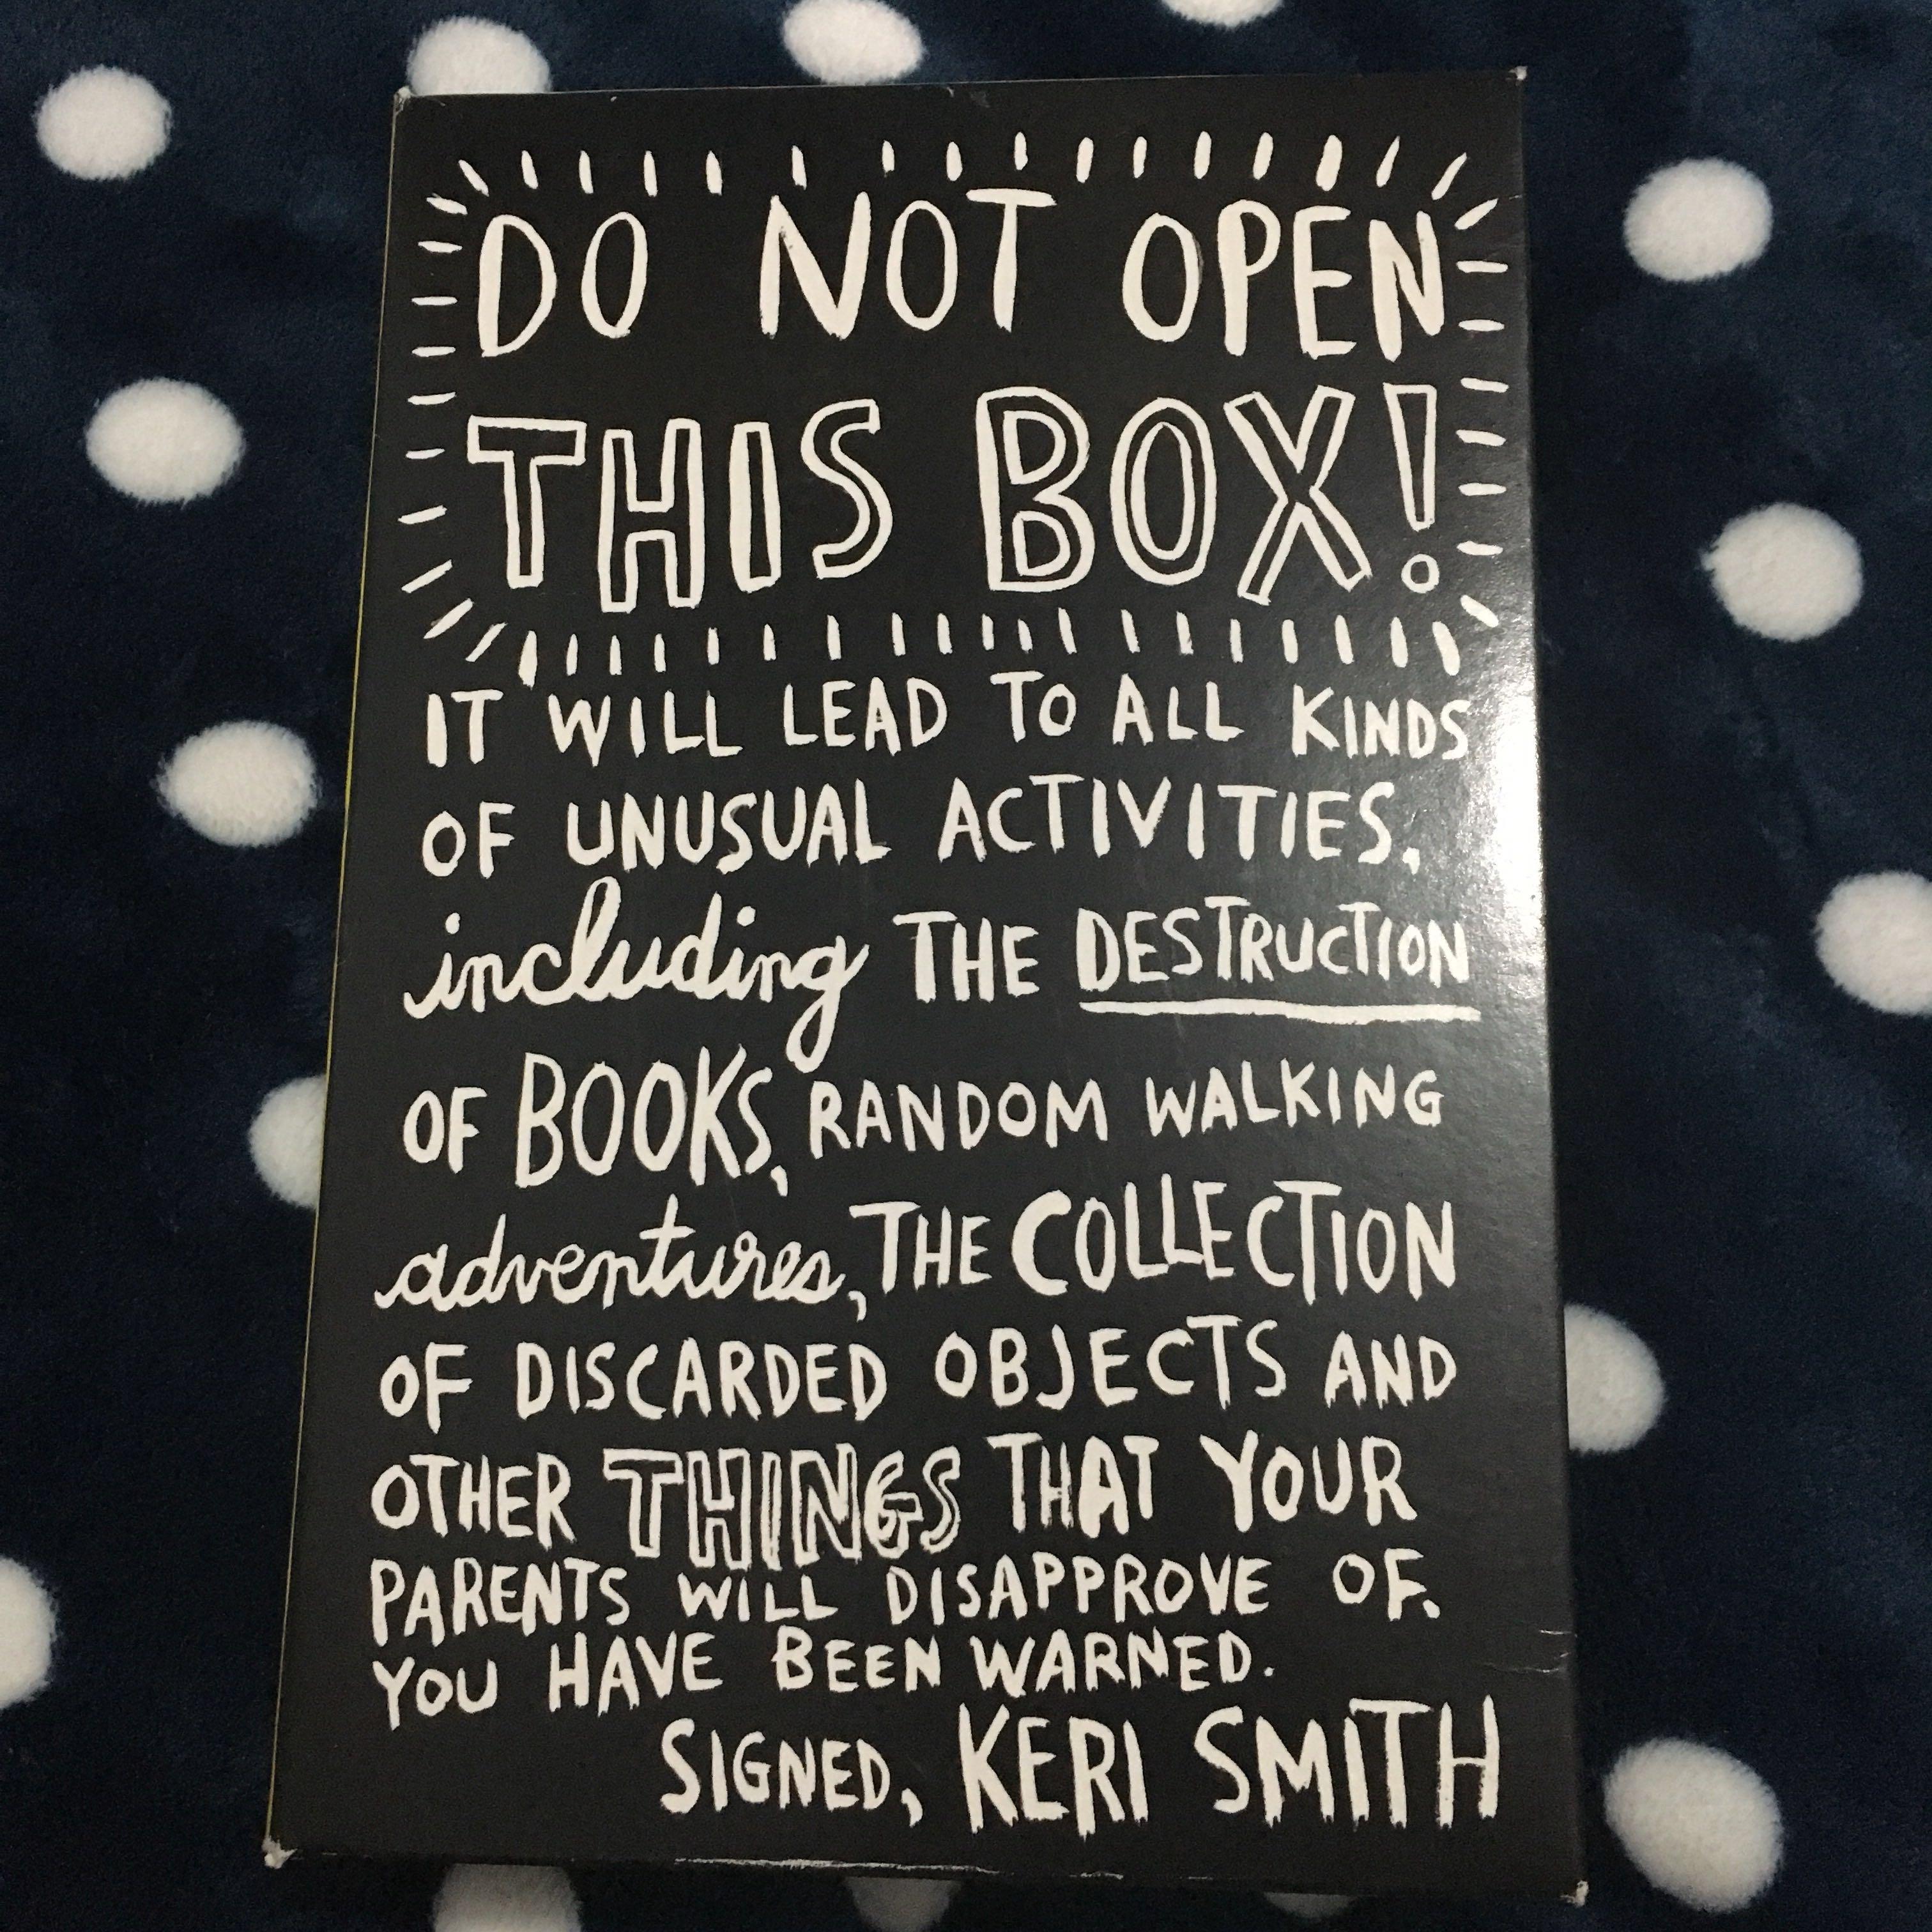 DO NOT OPEN
THIS BOX!
IT WILL LEAD TO ALL KINDS
OF UNUSUAL ACTIVITIES,
including THE DESTRUCTION
OF BOOKS, RANDOM WALKING
adventures, THE COLLECTION
OF DISCARDED OBJECTS AND
OTHER THINGS THAT YOUR
PARENTS WILL DISAPPROVE OF.
YOU HAVE BEEN WARNED.
SIGNED, KERI SMITH